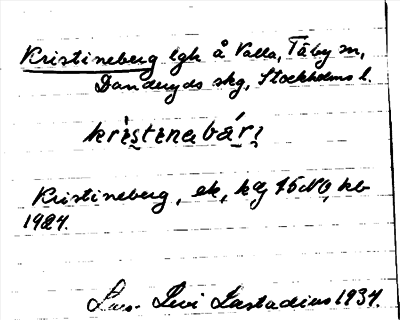 Kristineberg lgh å Valla, Täby sn,
Danderyds skg, Stockholms l.
kristinabärj
Kristineberg, ek, 15 NO, kb
1927.
Levi Laestadius 1934.